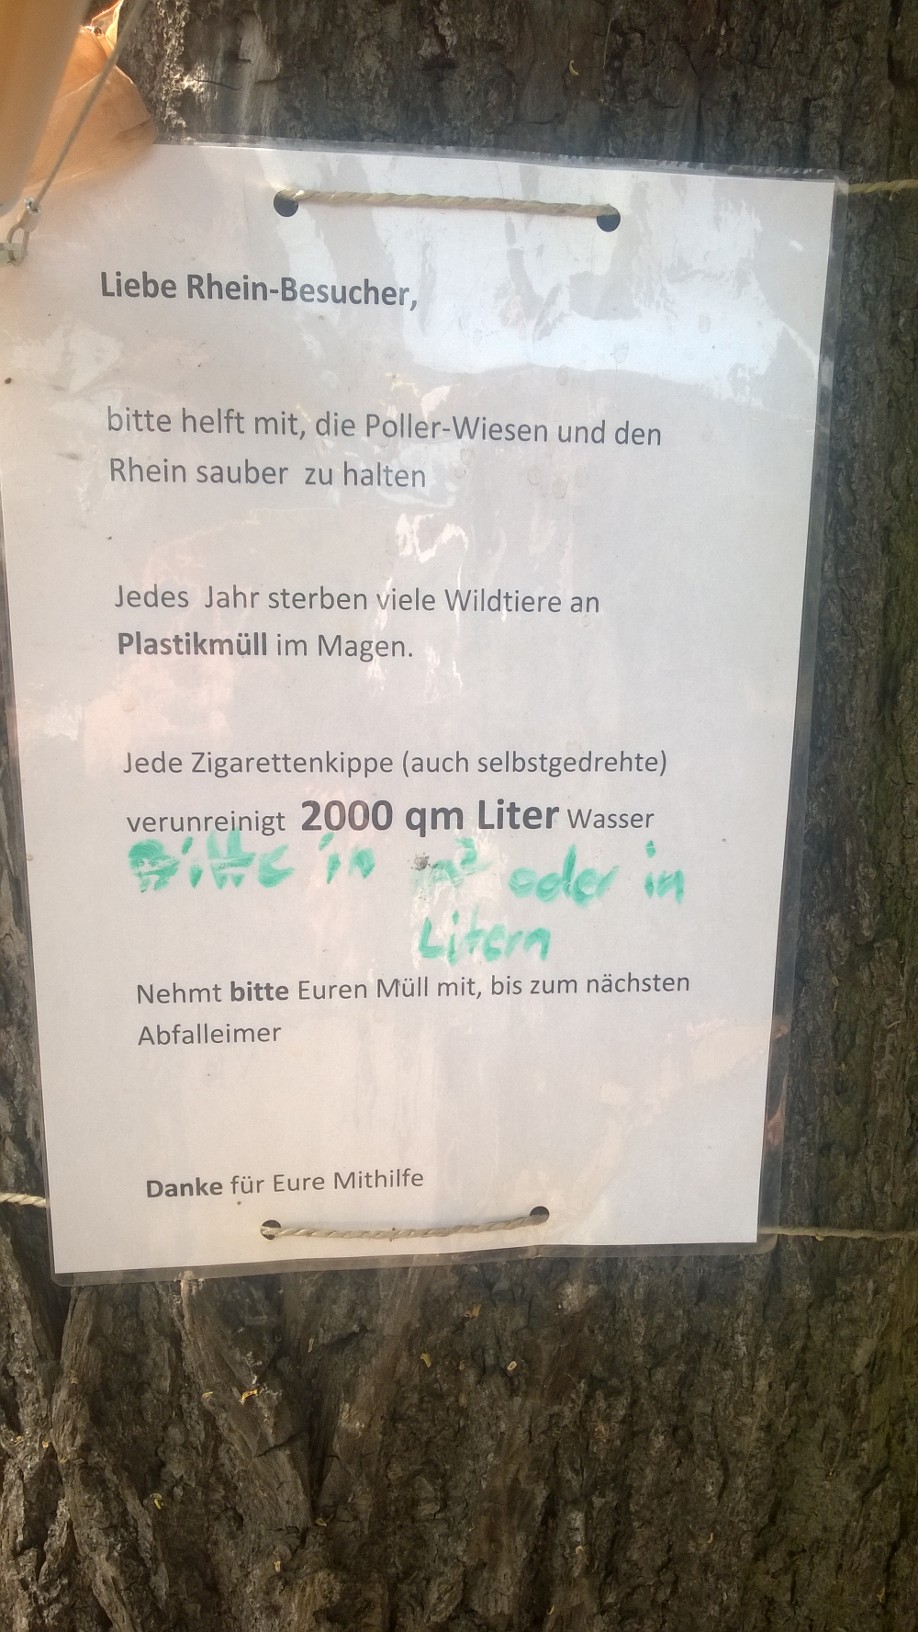 Liebe Rhein-Besucher,
bitte helft mit, die Poller-Wiesen und den
Rhein sauber zu halten
Jedes Jahr sterben viele Wildtiere an
Plastikmüll im Magen.
Jede Zigarettenkippe (auch selbstgedrehte)
verunreinigt 2000 qm Liter Wasser
Bitte in m³ oder in
Litern
Nehmt bitte Euren Müll mit, bis zum nächsten
Abfalleimer
Danke für Eure Mithilfe